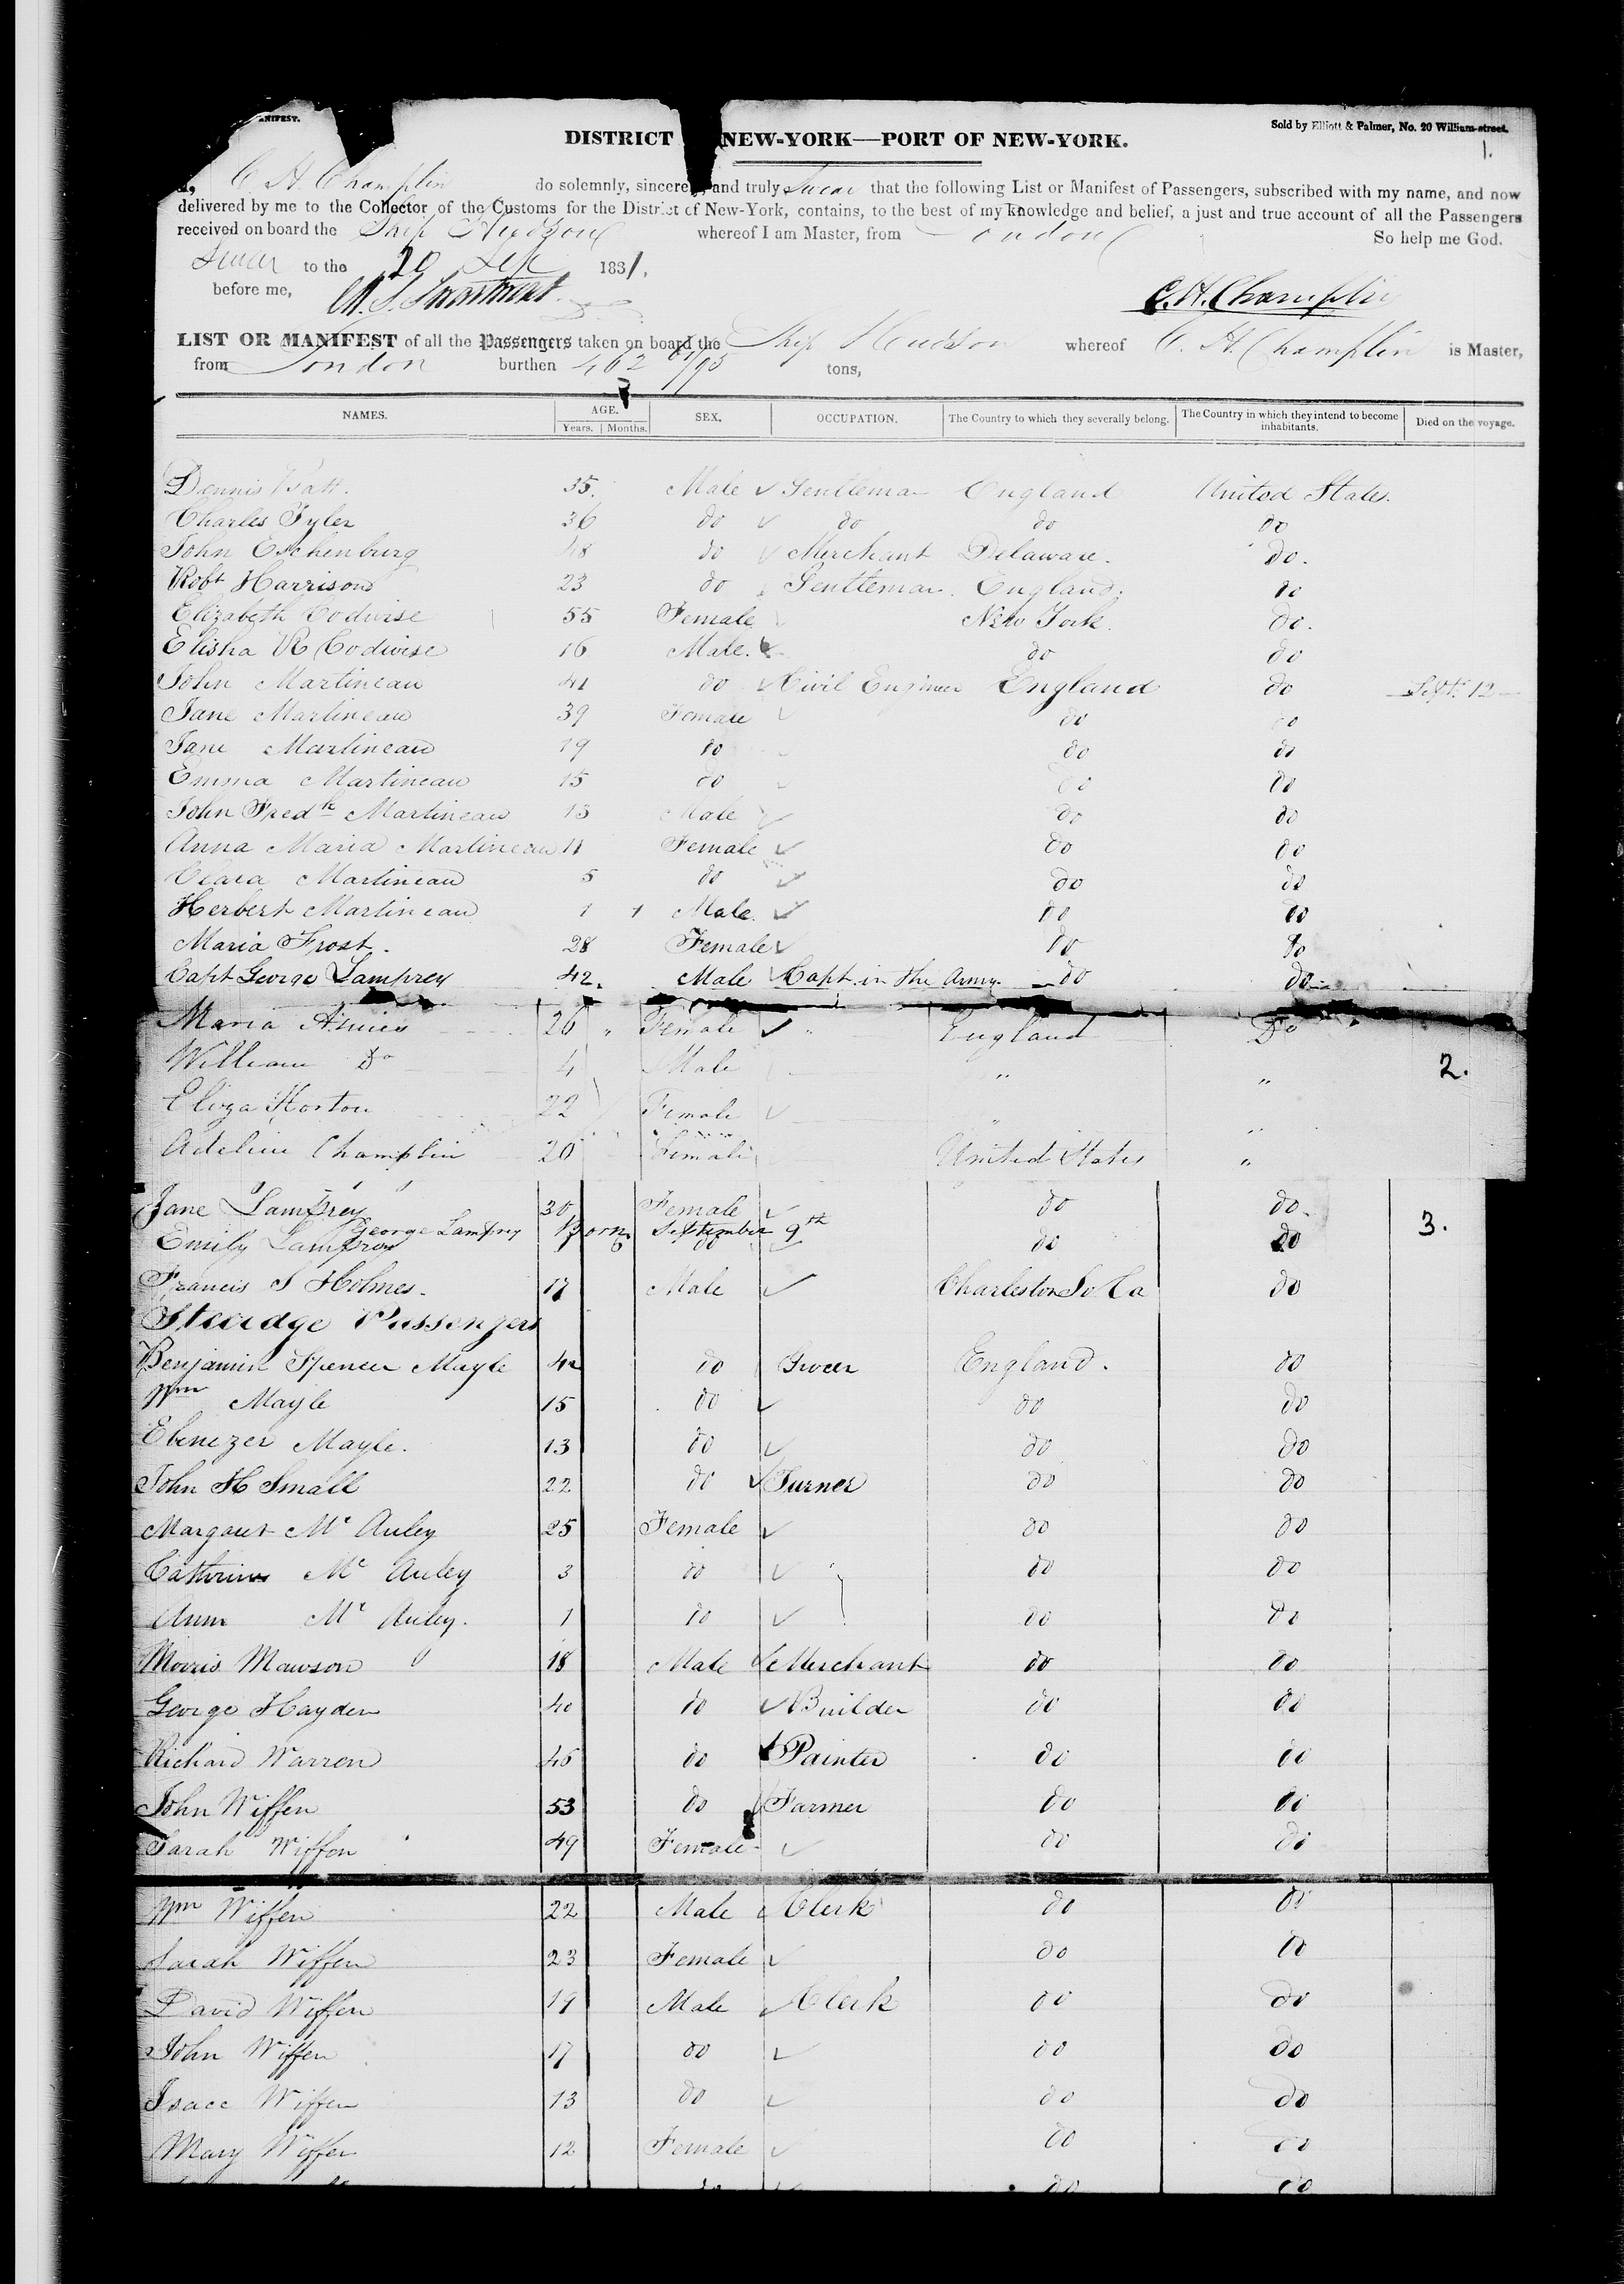 ANIFEST.
Sold by Elliott & Palmer, No. 20 William-street.
1.
DISTRICT NEW-YORK—PORT OF NEW-YORK.
I, C. H. Champlin do solemnly, sincerely and truly Swear that the following List or Manifest of Passengers, subscribed with my name, and now
delivered by me to the Collector of the Customs for the District of New-York, contains, to the best of my knowledge and belief, a just and true account of all the Passengers
received on board the Ship Hudson whereof I am Master, from London So help me God.
Swear to the 20 Sep 1831.
before me, C. H. Champlin
LIST OR MANIFEST of all the Passengers taken on board the Ship Hudson whereof C. H. Champlin is Master,
from London burthen 462 /95 tons,
NAMES. AGE. SEX. OCCUPATION. The Country to which they severally belong. The Country in which they intend to become inhabitants. Died on the voyage.
Years. Months.
Dennis 35. Male Gentleman England United States.
Charles Tyler 36 do do do do
John Eschenburg 48 do Merchant Delaware. Do.
Robt Harrison 23 do Gentleman. England. do
Elizabeth Codwise 55 Female New York. Do.
Elisha R Codwise 16 Male. do do
John Martineau 41 do Civil Engineer England do Sept. 12
Jane Martineau 39 Female do do
Jane Martineau 19 do do do
Emma Martineau 15 do do do
John Fredk Martineau 13 Male do do
Anna Maria Martineau 11 Female do do
Clara Martineau 5 do do do
Herbert Martineau 1 1 Male. do do
Maria Frost. 28 Female do do
Capt George Lamprey 42. Male Capt. in the Army. do do
Maria 26 " Female " England Do
William Do 4 Male " " 2.
Eliza Horton 22 Female " "
Adeline Champlin 20 Female United States "
Jane Lamprey 30 Female do do.
George Lamprey Born September 9th 3.
Emily Lamprey 6 do do do
Francis S Holmes. 17 Male Charleston So Ca do
Steerage Passengers
Benjamin Spencer Mayle 42 do Grocer England. do
Wm Mayle 15 do do do
Ebenezer Mayle. 13 do do do
John H Small 22 do Turner do do
Margaret Mc Auley 25 Female do do
Catherine Mc Auley 3 do do do
Ann Mc Auley. 1 do do do
Morris Mawson 18 Male Merchant do do
George Hayden 40 do Builder do do
Richard Warren 45 do Painter do do
John Wiffen 53 do Farmer do do
Sarah Wiffen 49 Female do do
Wm Wiffen 22 Male Clerk do do
Sarah Wiffen 23 Female do do
David Wiffen 19 Male Clerk do do
John Wiffen 17 do do do
Isaac Wiffen 13 do do do
Mary Wiffen 12 Female do do
do do